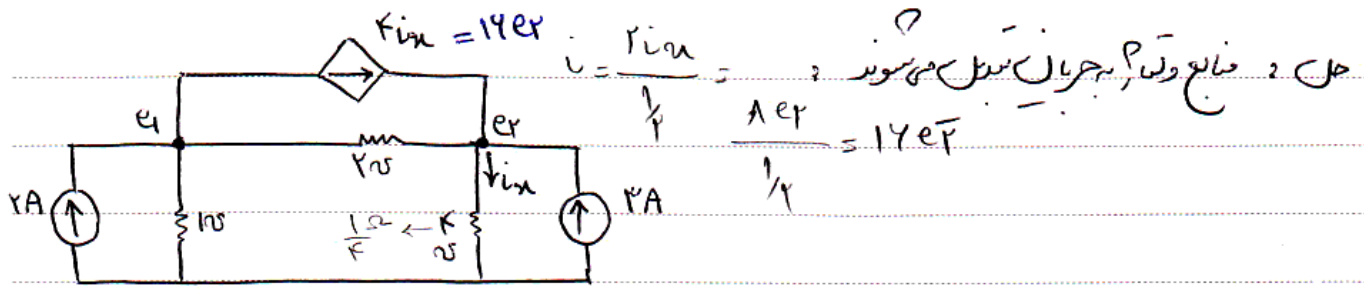 حل : منابع ولتاژ به جریان تبدیل می‌شوند :
i = ۲ix / ۱/۲ = ۸e۲ / ۱/۲ = ۱۶e۲
۴ix = ۱۶e۲
e۱
e۲
۲℧
↓ix
۲A
۱℧
۱/۴ Ω ← ۴℧
۳A